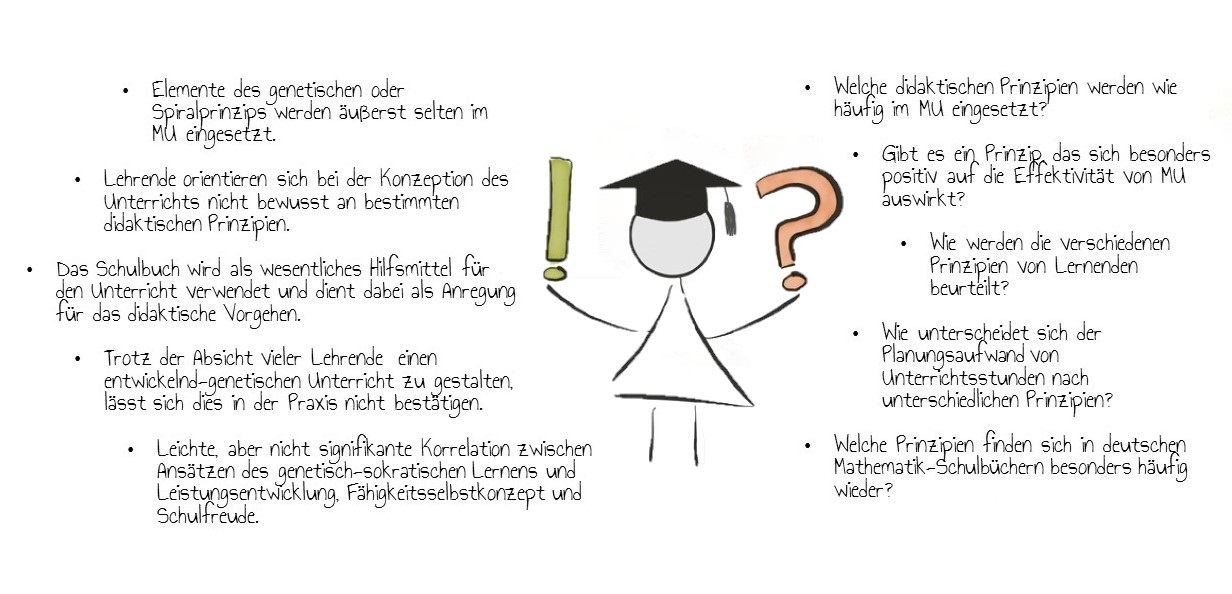 • Elemente des genetischen oder
Spiralprinzips werden äußerst selten im
MU eingesetzt.
• Lehrende orientieren sich bei der Konzeption des
Unterrichts nicht bewusst an bestimmten
didaktischen Prinzipien.
• Das Schulbuch wird als wesentliches Hilfsmittel für
den Unterricht verwendet und dient dabei als Anregung
für das didaktische Vorgehen.
• Trotz der Absicht vieler Lehrende einen
entwickelnd-genetischen Unterricht zu gestalten,
lässt sich dies in der Praxis nicht bestätigen.
• Leichte, aber nicht signifikante Korrelation zwischen
Ansätzen des genetisch-sokratischen Lernens und
Leistungsentwicklung, Fähigkeitsselbstkonzept und
Schulfreude.
!
?
• Welche didaktischen Prinzipien werden wie
häufig im MU eingesetzt?
• Gibt es ein Prinzip, das sich besonders
positiv auf die Effektivität von MU
auswirkt?
• Wie werden die verschiedenen
Prinzipien von Lernenden
beurteilt?
• Wie unterscheidet sich der
Planungsaufwand von
Unterrichtsstunden nach
unterschiedlichen Prinzipien?
• Welche Prinzipien finden sich in deutschen
Mathematik-Schulbüchern besonders häufig
wieder?